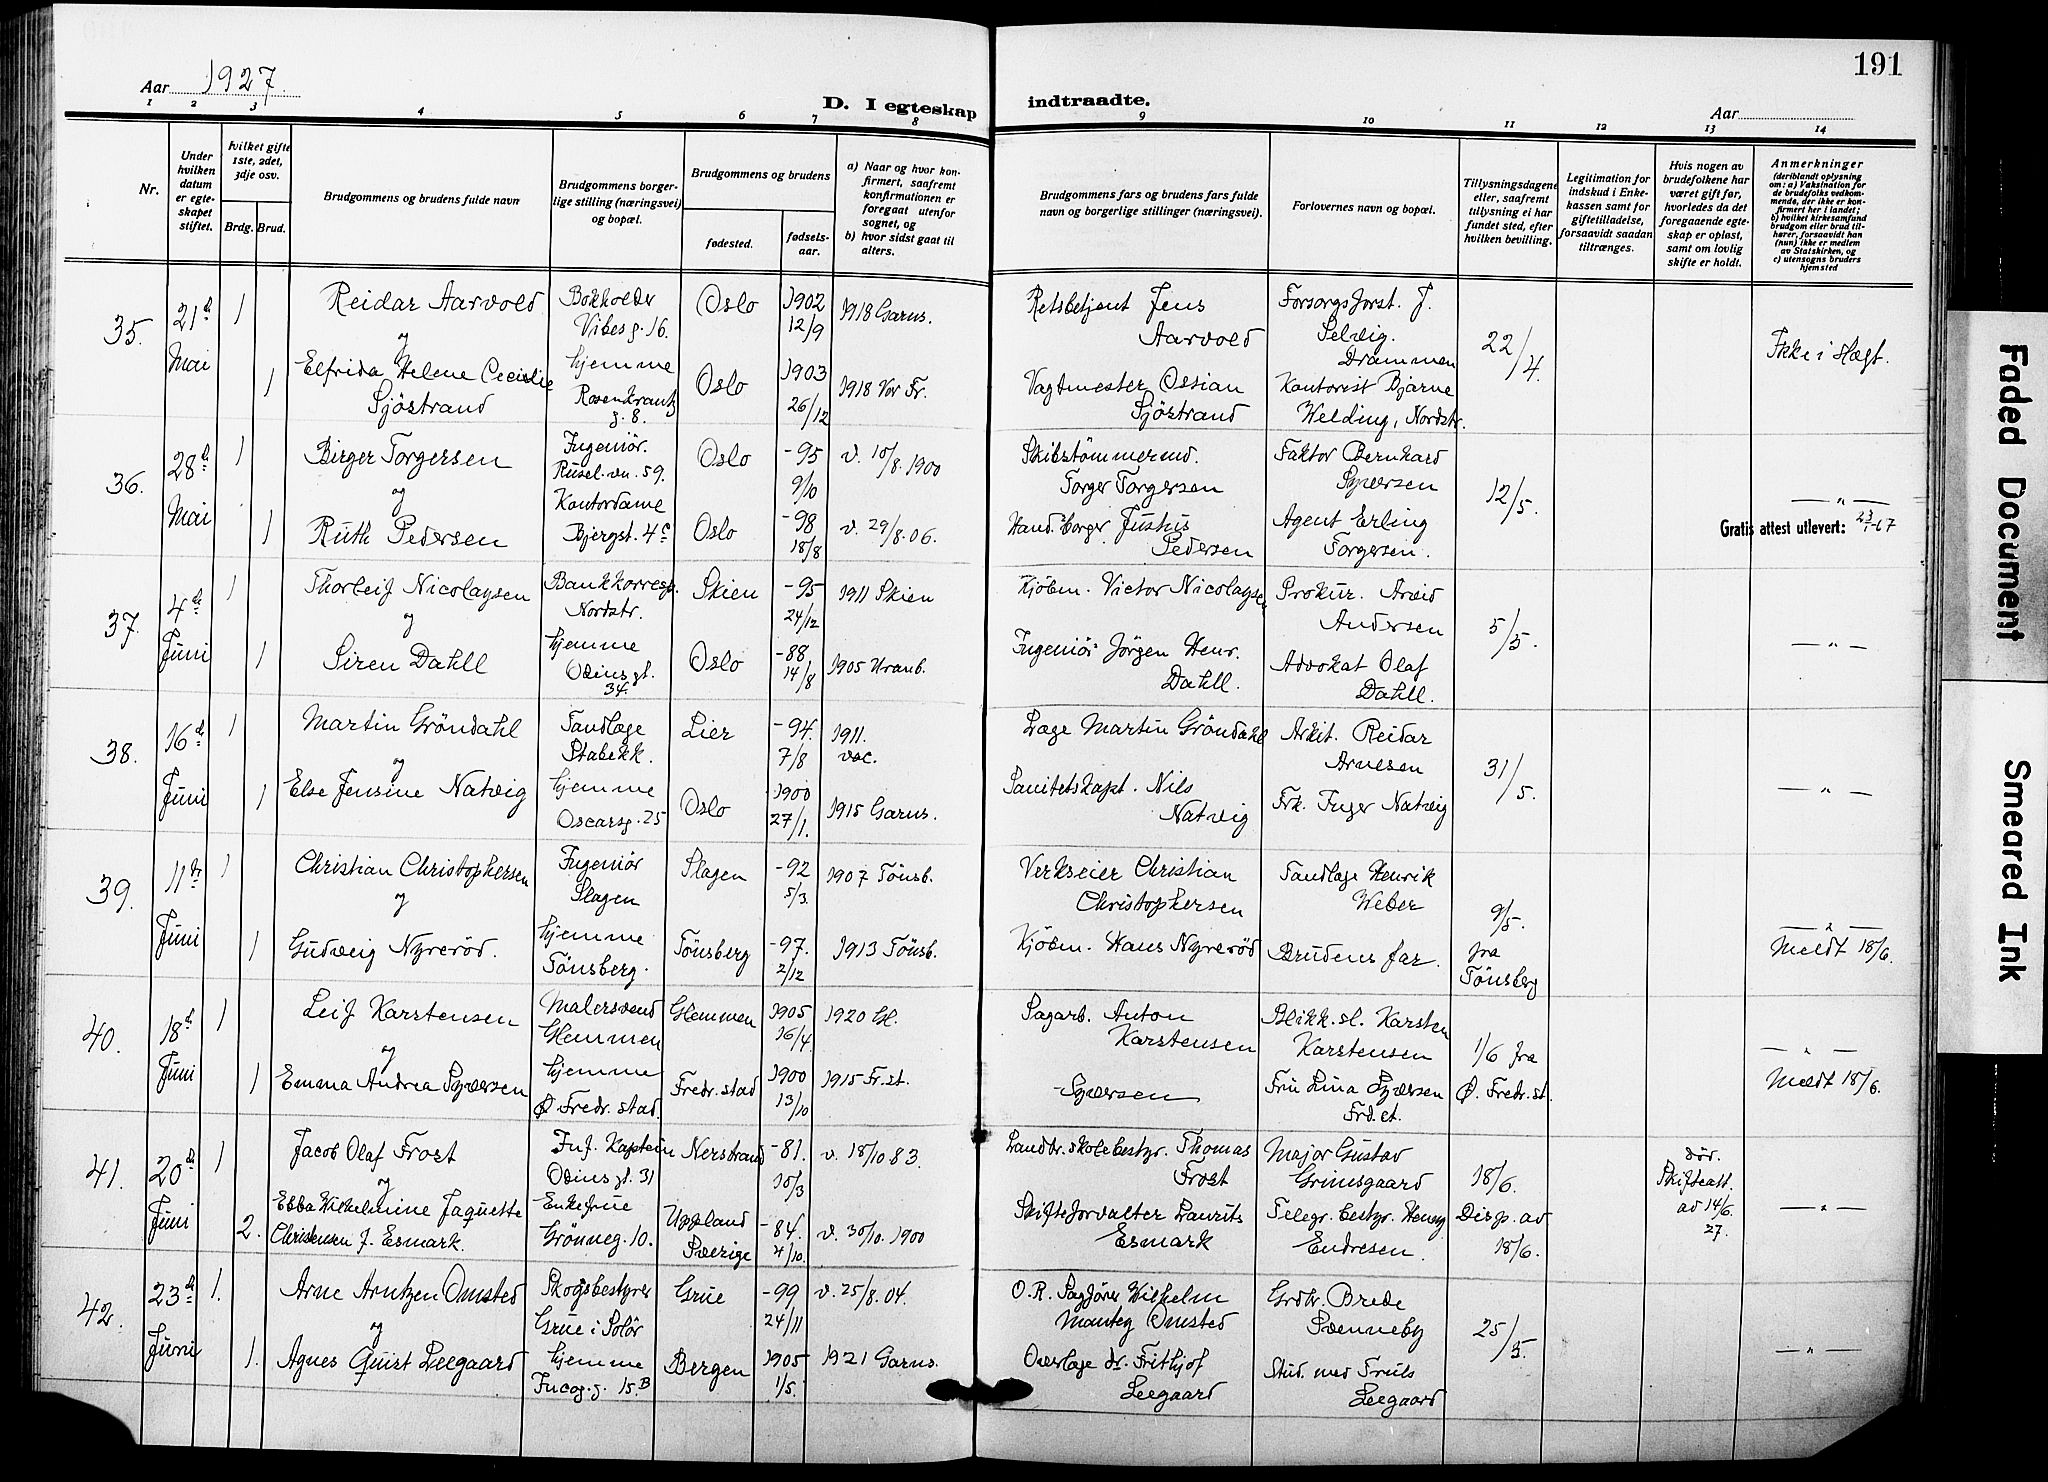 191
Aar 1927.
D. I egteskap indtraadte.
Aar
1 2 3 4 5 6 7 8 9 10 11 12 13 14
Nr.
Under hvilken datum er egteskapet stiftet.
hvilket gifte 1ste, 2det, 3dje osv.
Brdg. Brud.
Brudgommens og brudens fulde navn
Brudgommens borgerlige stilling (næringsvei) og bopæl.
Brudgommens og brudens
fødested.
fødselsaar.
a) Naar og hvor konfirmert, saafremt konfirmationen er foregaat utenfor sognet, og
b) hvor sidst gaat til alters.
Brudgommens fars og brudens fars fulde navn og borgerlige stillinger (næringsvei).
Forlovernes navn og bopæl.
Tillysningsdagene eller, saafremt tillysning ei har fundet sted, efter hvilken bevilling.
Legitimation for indskud i Enkekassen samt for giftetilladelse, forsaavidt saadan tiltrænges.
Hvis nogen av brudefolkene har været gift før, hvorledes da det foregaaende egteskap er opløst, samt om lovlig skifte er holdt.
Anmerkninger
(deriblandt oplysning om: a) Vaksination for de brudefolks vedkommende, der ikke er konfirmert her i landet; b) hvilket kirkesamfund brudgom eller brud tilhører, forsaavidt han (hun) ikke er medlem av Statskirken, og c) utensogns bruders hjemsted
35. 21de Mai 1
Reidar Aarvold
Bokholder
Vibesg. 16.
Oslo
1902
12/9
1918 Garns.
Retsbetjent Jens
Aarvold
Forsorgsforst. J.
Selvig.
Drammen
22/4.
Ikke i slegt.
og
1
Elfrida Helene Cecilie
Sjöstrand
hjemme
Rosenkrantz
g. 8.
Oslo
1903
26/12
1918 Vor Fr.
Vagtmester Ossian
Sjöstrand
Kontorist Bjarne
Welding, Nordstr.
36. 28de Mai 1
Birger Torgersen
Ingeniør.
Rusel.vn. 59.
Oslo
-95
9/10
v. 10/8. 1900
Skibstømmermd.
Torger Torgersen
Faktor Bernhard
Syversen
12/5.
— " —
og
1
Ruth Pedersen
Kontordame
Bjergst. 4c
Oslo
-98
18/8
v. 29/8. 06.
Hand.borger Justus
Pedersen
Agent Erling
Torgersen.
Gratis attest utlevert: 23/1-67
37. 4de Juni 1
Thorleif Nicolaysen
Bankkorresp.
Nordstr.
Skien
-95
24/12
1911 Skien
Kjöbm. Victor Nicolaysen
Prokur. Arvid
Andersen
5/5.
— " —
og
1
Siren Dahll
hjemme
Odinsgt.
34.
Oslo
-88
14/8
1905 Uranb.
Ingeniør Jörgen Henr.
Dahll.
Advokat Olaf
Dahll.
38. 16de Juni 1
Martin Gröndahl
Tandlæge
Stabekk.
Lier
-94.
7/8
1911.
Læge Martin Gröndahl
Arkit. Reidar
Arnesen
31/5.
— " —
og
1
Else Jensine Natvig
hjemme
Oscarsg. 25
Oslo
1900
27/1.
1915 Garns.
Sanitetskapt. Nils
Natvig
Frk. Inger Natvig
39. 11te Juni 1
Christian Christophersen
Ingeniør
Slagen
Slagen
-92
5/3.
1907 Tönsb.
Verkseier Christian
Christophersen
Tandlæge Henrik
Weber
9/5.
fra
Tönsberg
— " —
Meldt 18/6.
og
1
Gudveig Nyreröd.
hjemme
Tönsberg.
Tönsberg
-97.
2/12
1913 Tönsb.
Kjöbm. Hans Nyreröd
Brudens far.
40. 18de Juni 1
Leif Karstensen
Malersvend
Glemmen
Glemmen
1905
16/4
1920 Gl.
Sagarb. Anton
Karstensen
Blikk.sl. Karsten
Karstensen
1/6 fra
Ø. Fredr.st.
— " —
Meldt 18/6.
og
1
Emma Andrea Syversen
hjemme
Ø Fredr.stad.
Fredr.stad
1900
13/10
1915 Fr.st.
- Syversen
Fru Lina Syversen
Frd.st.
41. 20de Juni 1
Jacob Olaf Frost
Inf. Kaptein
Odinsgt. 31
Nerstrand
-81.
10/3
v. 18/10 83.
Landbr.skolebestyr. Thomas
Frost
Major Gustav
Grimsgaard
18/6.
Disp. av
18/6.
død.
Skifteatt.
av 14/6.
27.
— " —
og
2.
Ebba Wilhelmine Jaquette
Christensen f. Esmark.
Enkefrue
Grönneg. 10.
Uppland
Sverige
-84.
4/10.
v. 30/10. 1900
Skifteforvalter Laurits
Esmark
Telegr. bestyr. Henry
Endresen.
42. 23de Juni 1.
Arne Arntzen Omsted
Skogsbestyrer
Grue i Solör
Grue
-99
24/11
v. 25/8. 04.
O.R. Sagfører Wilhelm
Mantey Omsted
Grdbr. Brede
Svenneby
25/5.
— " —
og
1.
Agnes Quist Leegaard
hjemme
Incog.g. 15.B
Bergen
1905
1/5.
1921 Garns.
Overlæge dr. Frithjof
Leegaard
Stud. med Truls
Leegaard
Faded Document
Smeared Ink